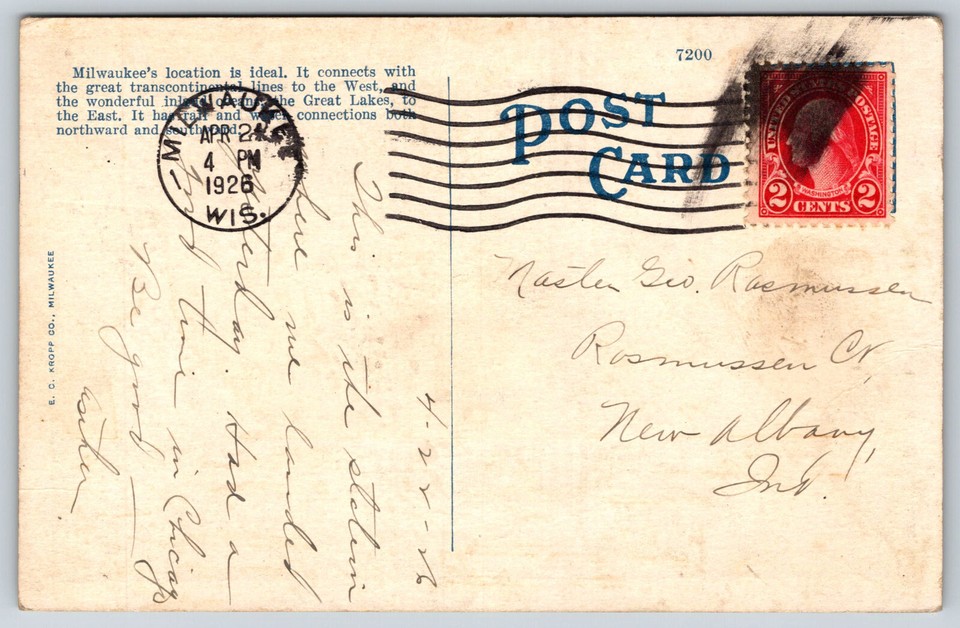 7200
Milwaukee's location is ideal. It connects with
the great transcontinental lines to the West, and
the wonderful inland oceans, the Great Lakes, to
the East. It has rail and water connections both
northward and southward.
MILWAUKEE
APR 24
4 PM
1926
WIS.
POST
CARD
UNITED STATES POSTAGE
WASHINGTON
2 CENTS 2
4-22-26
This is the station
where we landed
yesterday. Had a
good time in Chicago
Be good —
Master Geo. Rasmussen
Rasmussen Ct,
New Albany,
Ind.
E. C. KROPP CO., MILWAUKEE